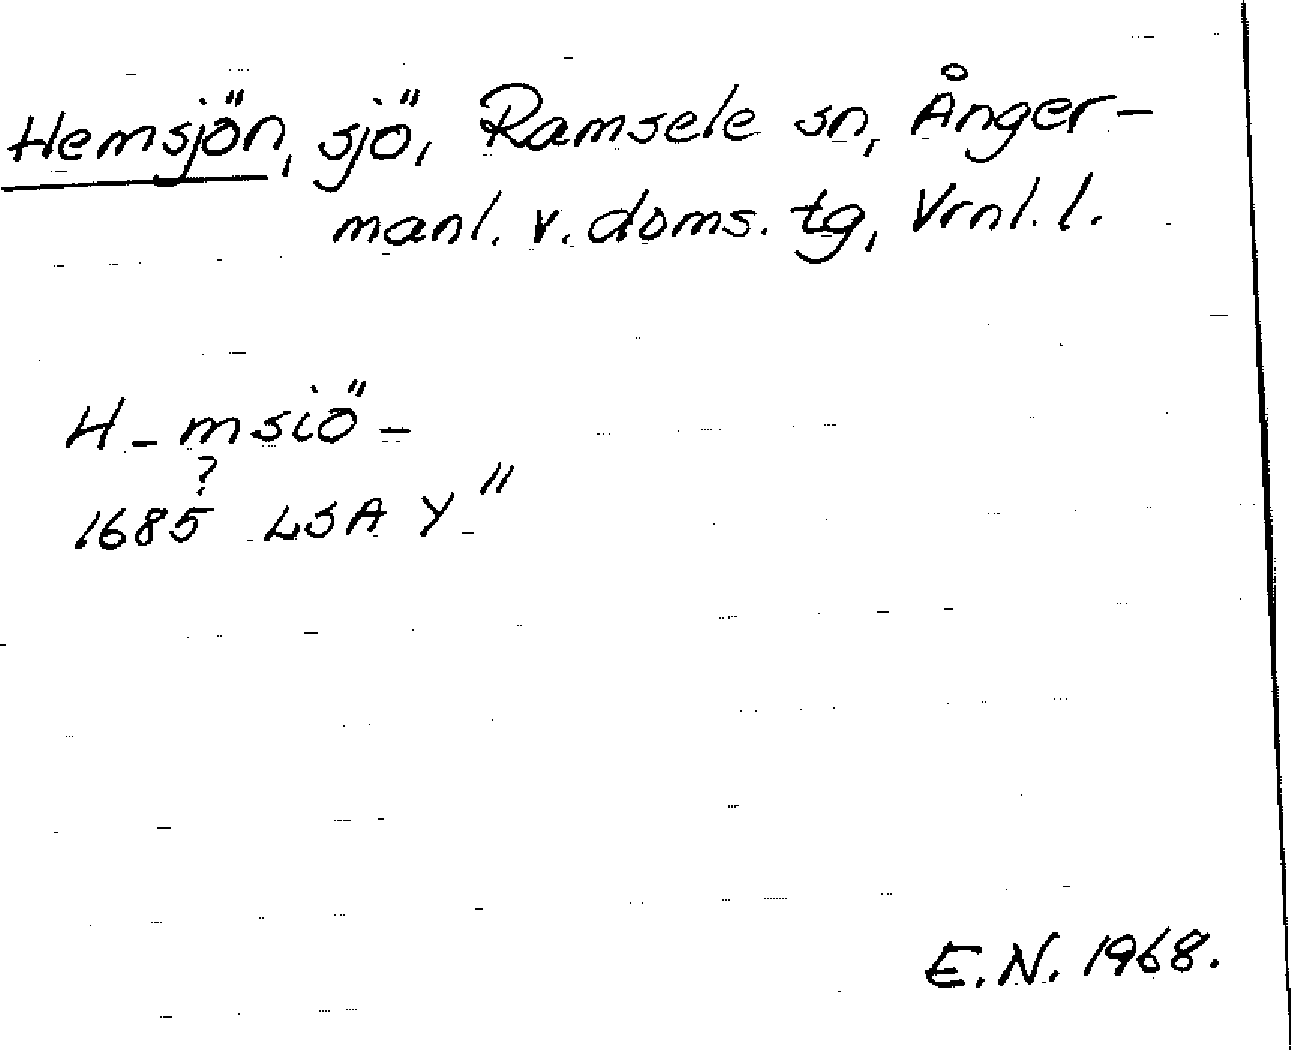 Hemsjön, sjö, Ramsele sn, Ånger-
manl. v. doms. tg, Vrnl. l.
H-msiö-
?
1685 LSA Y"
E.N. 1968.